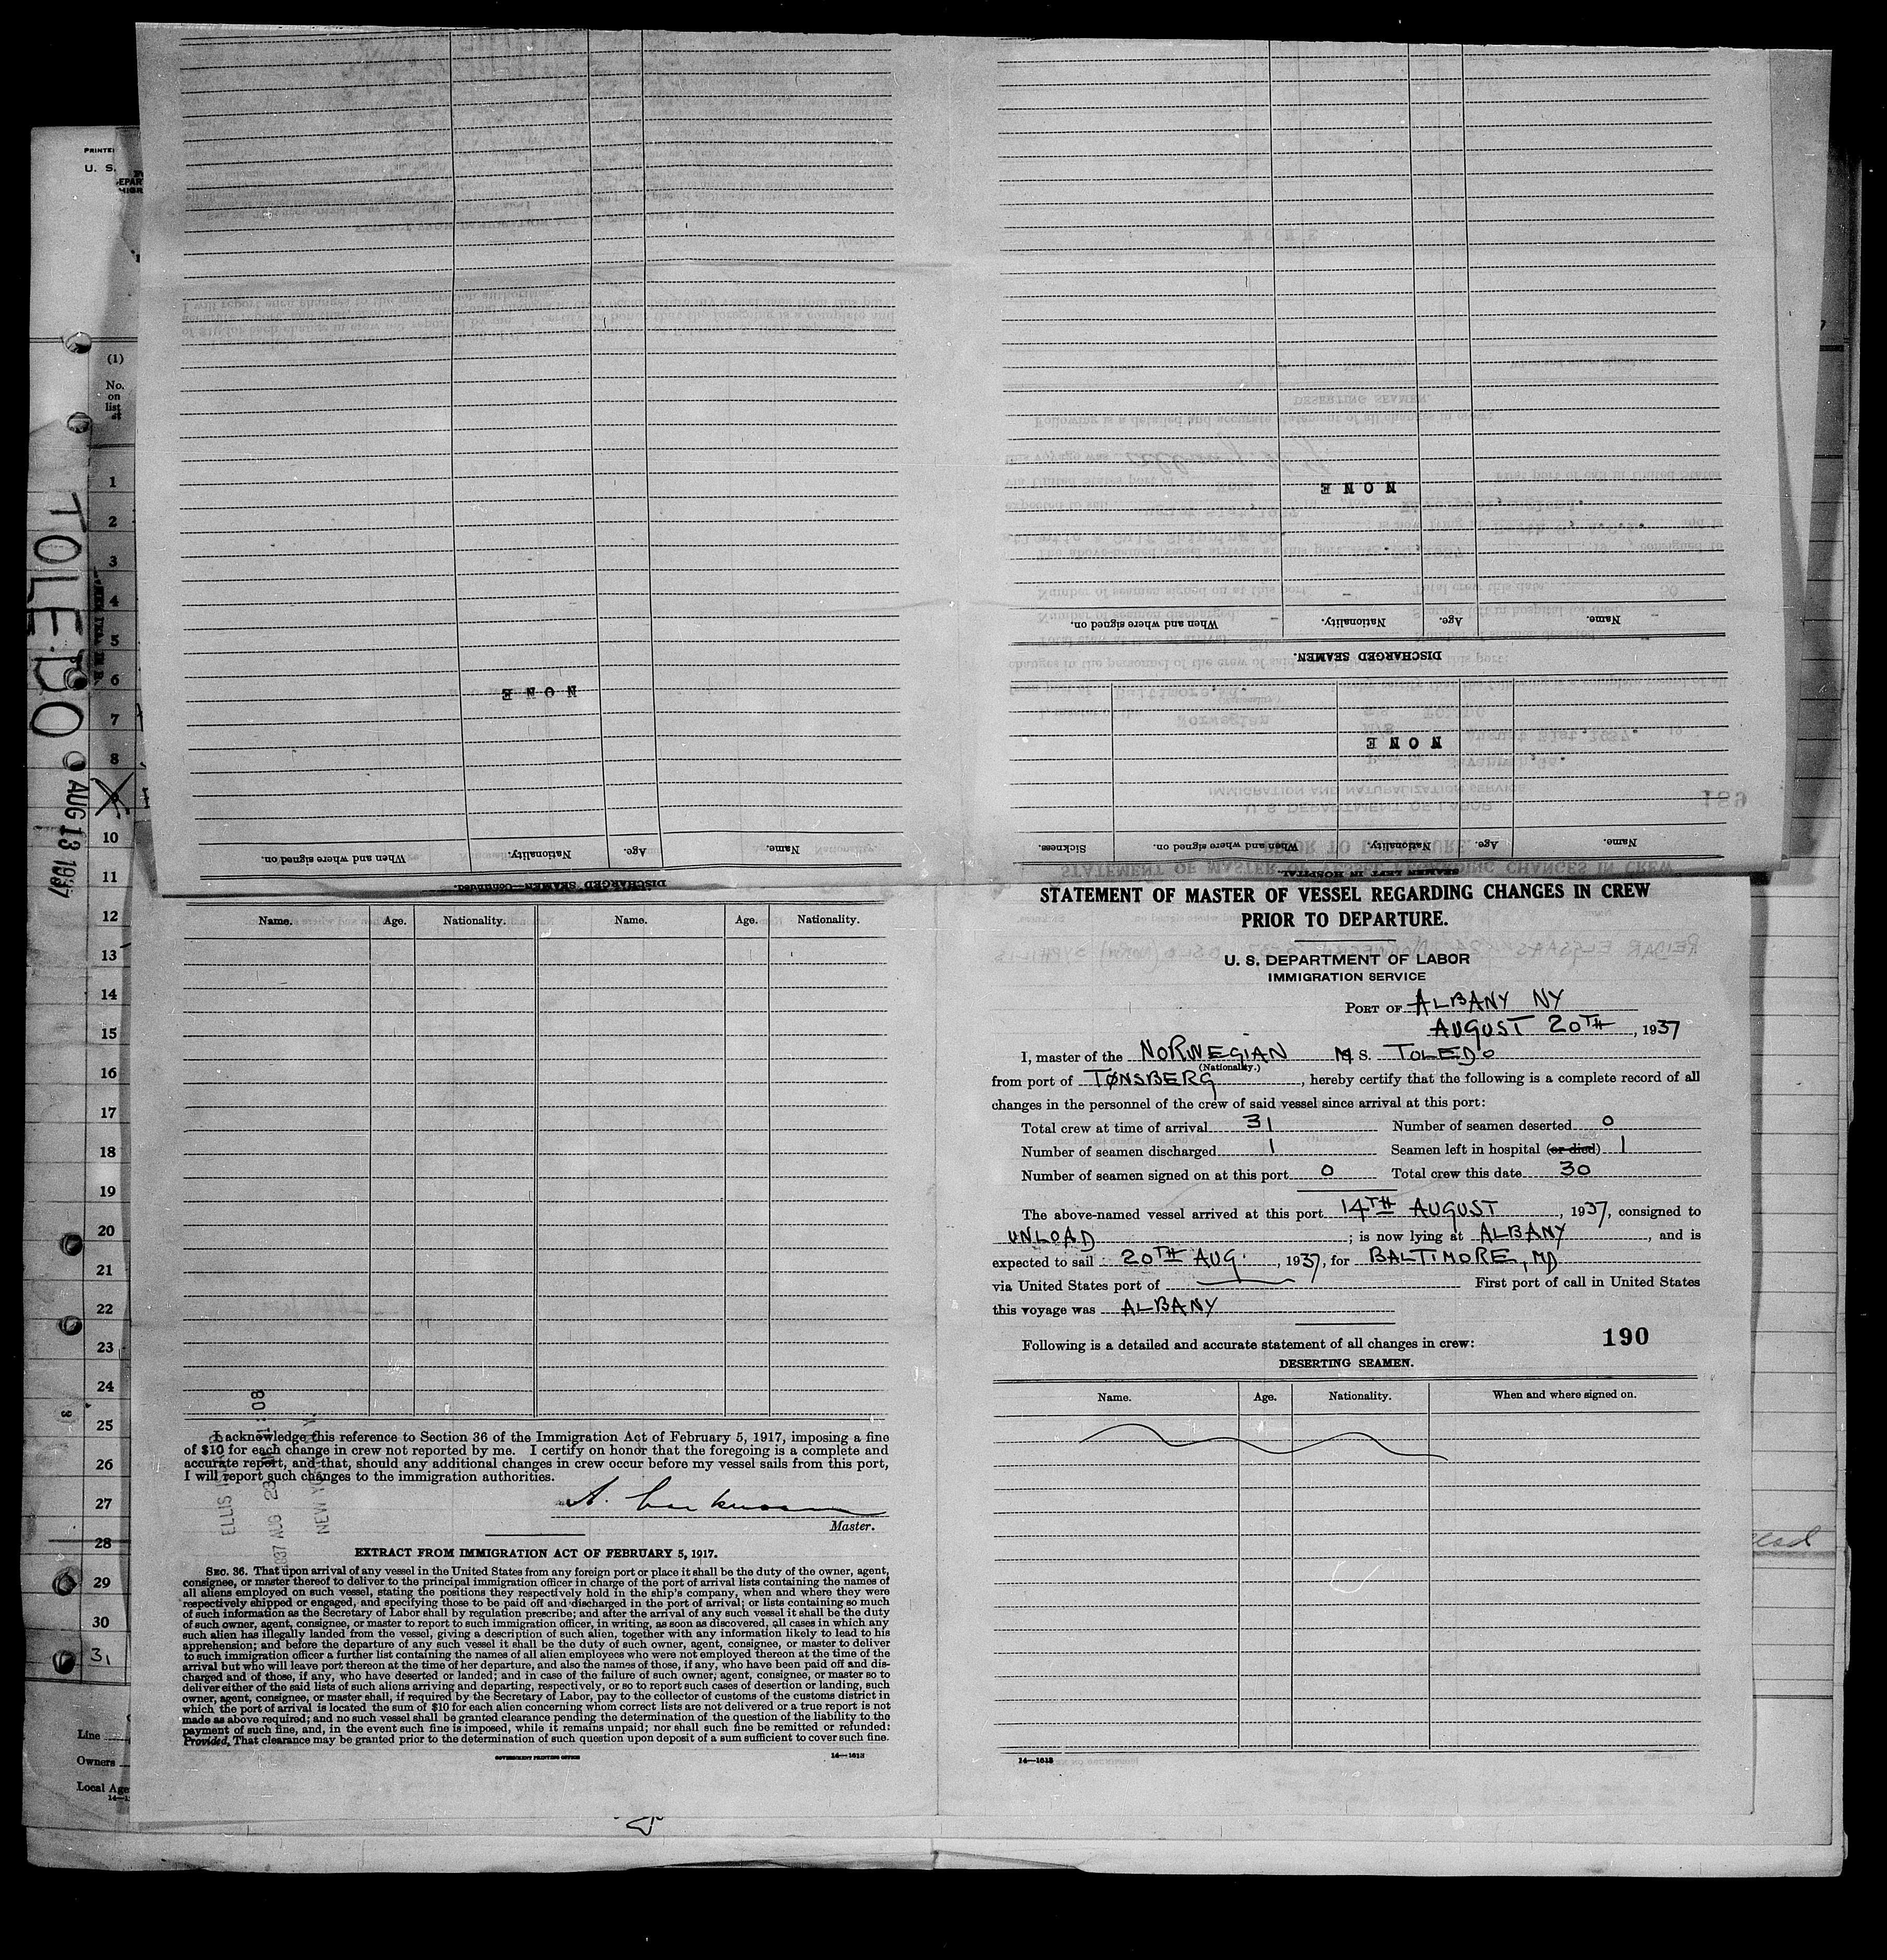 PRINTE
U. S.
(1)
No.
on
list
1
2
3
4
5
6
7
8
10
11
12
13
14
15
16
17
18
19
20
21
22
23
24
25
26
27
28
29
30
31
Line
Owners
Local Age
TOLEDO
AUG 13 1937
When and where signed on. Nationality. Age. Name.
NONE
DISCHARGED SEAMEN—Continued.
NONE
When and where signed on. Nationality. Age. Name.
DISCHARGED SEAMEN.
NONE
Sickness. When and where signed on. Nationality. Age. Name.
SEAMEN LEFT IN HOSPITAL.
189
Name. Age. Nationality. Name. Age. Nationality.
I acknowledge this reference to Section 36 of the Immigration Act of February 5, 1917, imposing a fine
of $10 for each change in crew not reported by me. I certify on honor that the foregoing is a complete and
accurate report, and that, should any additional changes in crew occur before my vessel sails from this port,
I will report such changes to the immigration authorities.
Master.
EXTRACT FROM IMMIGRATION ACT OF FEBRUARY 5, 1917.
SEC. 36. That upon arrival of any vessel in the United States from any foreign port or place it shall be the duty of the owner, agent,
consignee, or master thereof to deliver to the principal immigration officer in charge of the port of arrival lists containing the names of
all aliens employed on such vessel, stating the positions they respectively hold in the ship's company, when and where they were
respectively shipped or engaged, and specifying those to be paid off and discharged in the port of arrival; or lists containing so much
of such information as the Secretary of Labor shall by regulation prescribe; and after the arrival of any such vessel it shall be the duty
of such owner, agent, consignee, or master to report to such immigration officer, in writing, as soon as discovered, all cases in which any
such alien has illegally landed from the vessel, giving a description of such alien, together with any information likely to lead to his
apprehension; and before the departure of any such vessel it shall be the duty of such owner, agent, consignee, or master to deliver
to such immigration officer a further list containing the names of all alien employees who were not employed thereon at the time of the
arrival but who will leave port thereon at the time of her departure, and also the names of those, if any, who have been paid off and dis-
charged and of those, if any, who have deserted or landed; and in case of the failure of such owner, agent, consignee, or master so to
deliver either of the said lists of such aliens arriving and departing, respectively, or so to report such cases of desertion or landing, such
owner, agent, consignee, or master shall, if required by the Secretary of Labor, pay to the collector of customs of the customs district in
which the port of arrival is located the sum of $10 for each alien concerning whom correct lists are not delivered or a true report is not
made as above required; and no such vessel shall be granted clearance pending the determination of the question of the liability to the
payment of such fine, and, in the event such fine is imposed, while it remains unpaid; nor shall such fine be remitted or refunded:
Provided, That clearance may be granted prior to the determination of such question upon deposit of a sum sufficient to cover such fine.
GOVERNMENT PRINTING OFFICE 14—1613
STATEMENT OF MASTER OF VESSEL REGARDING CHANGES IN CREW
PRIOR TO DEPARTURE.
U. S. DEPARTMENT OF LABOR
IMMIGRATION SERVICE
PORT OF ALBANY NY
AUGUST 20TH, 1937
I, master of the NORWEGIAN M S. TOLEDO
(Nationality.)
from port of TØNSBERG, hereby certify that the following is a complete record of all
changes in the personnel of the crew of said vessel since arrival at this port:
Total crew at time of arrival 31 Number of seamen deserted 0
Number of seamen discharged 1 Seamen left in hospital (or died) 1
Number of seamen signed on at this port 0 Total crew this date 30
The above-named vessel arrived at this port 14TH AUGUST, 1937, consigned to
UNLOAD; is now lying at ALBANY, and is
expected to sail 20TH AUG., 1937, for BALTIMORE, MD
via United States port of First port of call in United States
this voyage was ALBANY
Following is a detailed and accurate statement of all changes in crew: 190
DESERTING SEAMEN.
Name. Age. Nationality. When and where signed on.
14—1613